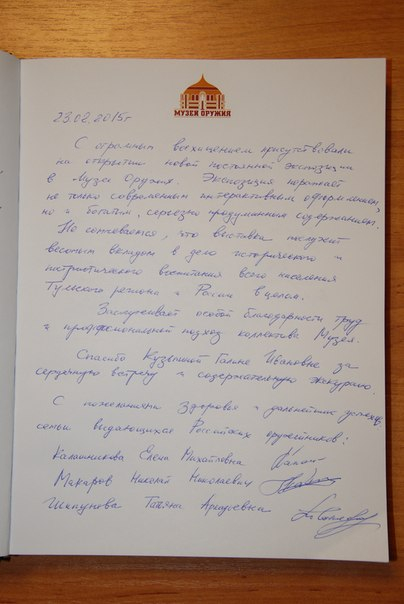 МУЗЕЙ ОРУЖИЯ
23.02.2015г
С огромным восхищением присутствовали
на открытии новой постоянной экспозиции
в Музее Оружия. Экспозиция поражает
не только современным интерактивным оформлением,
но и богатым, серьезно продуманным содержанием.
Не сомневаемся, что выставка послужит
весомым вкладом в дело исторического и
патриотического воспитания всего населения
Тульского региона и России в целом.
Заслуживает особой благодарности труд
и профессиональный подход коллектива Музея.
Спасибо Кузьминой Галине Ивановне за
сердечную встречу и содержательную экскурсию.
С пожеланиями здоровья и дальнейших успехов
семьи выдающихся Российских оружейников:
Калашникова Елена Михайловна
Макаров Николай Николаевич
Татьяна Аркадьевна